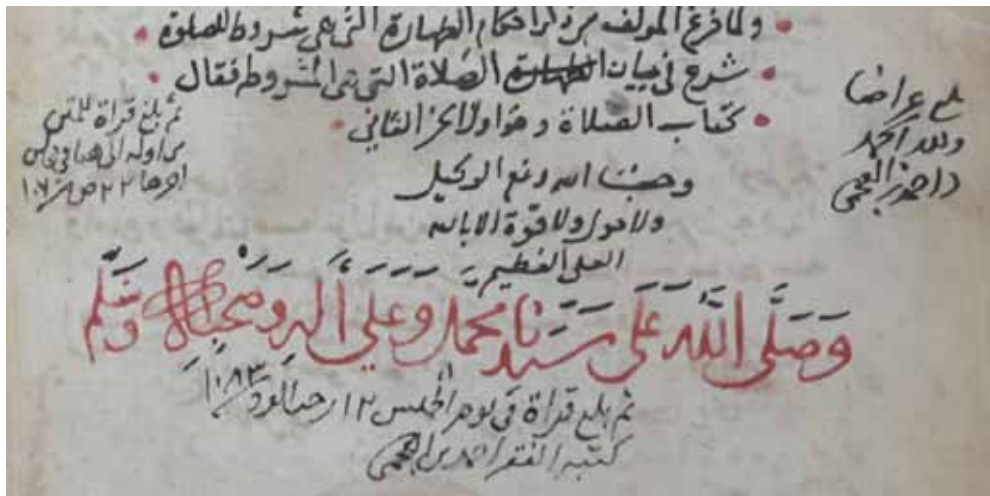 ولما فرغ المؤلف من ذكر احكام الطهارة التي هي شروط للصلوة
شرع في بيان الطهارة الصلاة التي هي المشروط فقال
كتاب الصلاة وهو اول الجز الثاني
وحسبنا الله ونعم الوكيل
ولا حول ولا قوة الا بالله
العلي العظيم
وصلى الله على سيدنا محمد وعلى آله وصحبه وسلم
ثم بلغ قراة في يوم الخميس ١٢ رجب ١٠٨٣
كتبه الفقير احمد بن العجمي
بلغ عراضا
ولله الحمد
احمد بن العجمي
ثم بلغ قراة للمتن
من اوله الى هنا في
اخرها ٢٢ ١٠٧